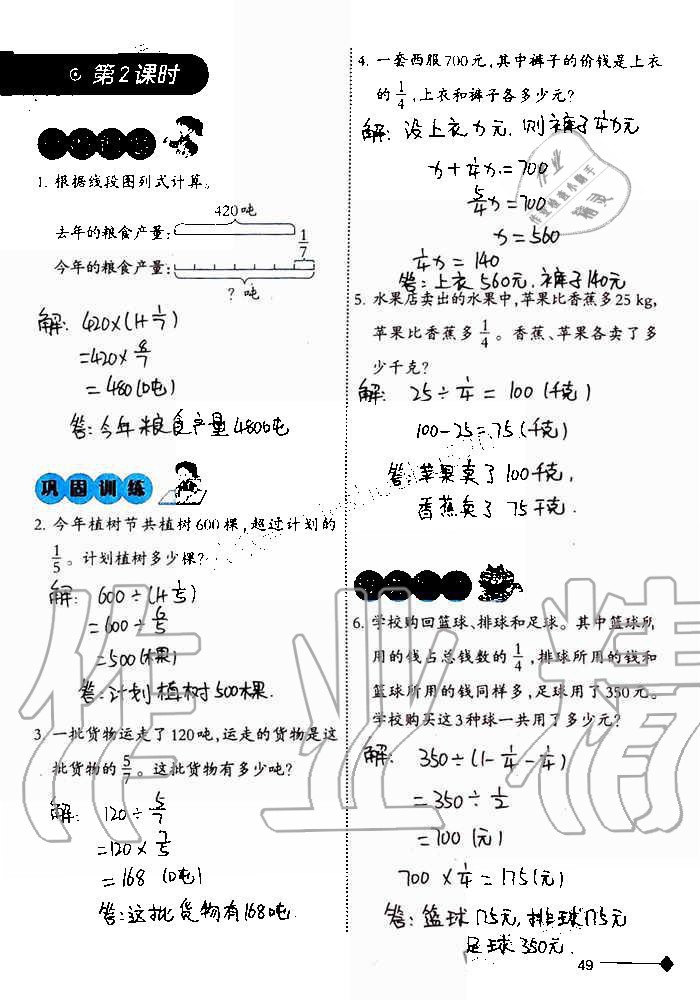 第2课时
1. 根据线段图列式计算。
420吨
去年的粮食产量:
1/7
今年的粮食产量:
? 吨
解: 420×(1+1/7)
=420×8/7
=480(吨)
答:今年粮食产量480吨
巩固训练
2. 今年植树节共植树600棵,超过计划的
1/5。计划植树多少棵?
解: 600÷(1+1/5)
=600÷6/5
=500(棵)
答:计划植树500棵.
3. 一批货物运走了120吨,运走的货物是这
批货物的5/7。这批货物有多少吨?
解: 120÷5/7
=120×7/5
=168 (吨)
答:这批货物有168吨.
4. 一套西服700元,其中裤子的价钱是上衣
的1/4,上衣和裤子各多少元?
解: 设上衣x元,则裤子1/4x元
x+1/4x=700
5/4x=700
x=560
1/4x=140
答:上衣560元,裤子140元
5. 水果店卖出的水果中,苹果比香蕉多25 kg,
苹果比香蕉多1/4。香蕉、苹果各卖了多
少千克?
解: 25÷1/4=100(千克)
100-25=75(千克)
答:苹果卖了100千克,
香蕉卖了75千克.
6. 学校购回篮球、排球和足球。其中篮球所
用的钱占总钱数的1/4,排球所用的钱和
篮球所用的钱同样多,足球用了350元。
学校购买这3种球一共用了多少元?
解: 350÷(1-1/4-1/4)
=350÷1/2
=700(元)
700×1/4=175(元)
答:篮球175元,排球175元
足球350元.
49
作业精